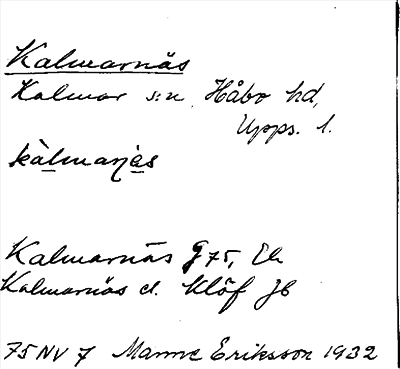 Kalmarnäs
Kalmar s:n Håbo hd,
Upps. l.
kàlmarnäs
Kalmarnäs G 75, Ek
Kalmarnäs el. Klöf Jb
75 NV 7 Manne Eriksson 1932